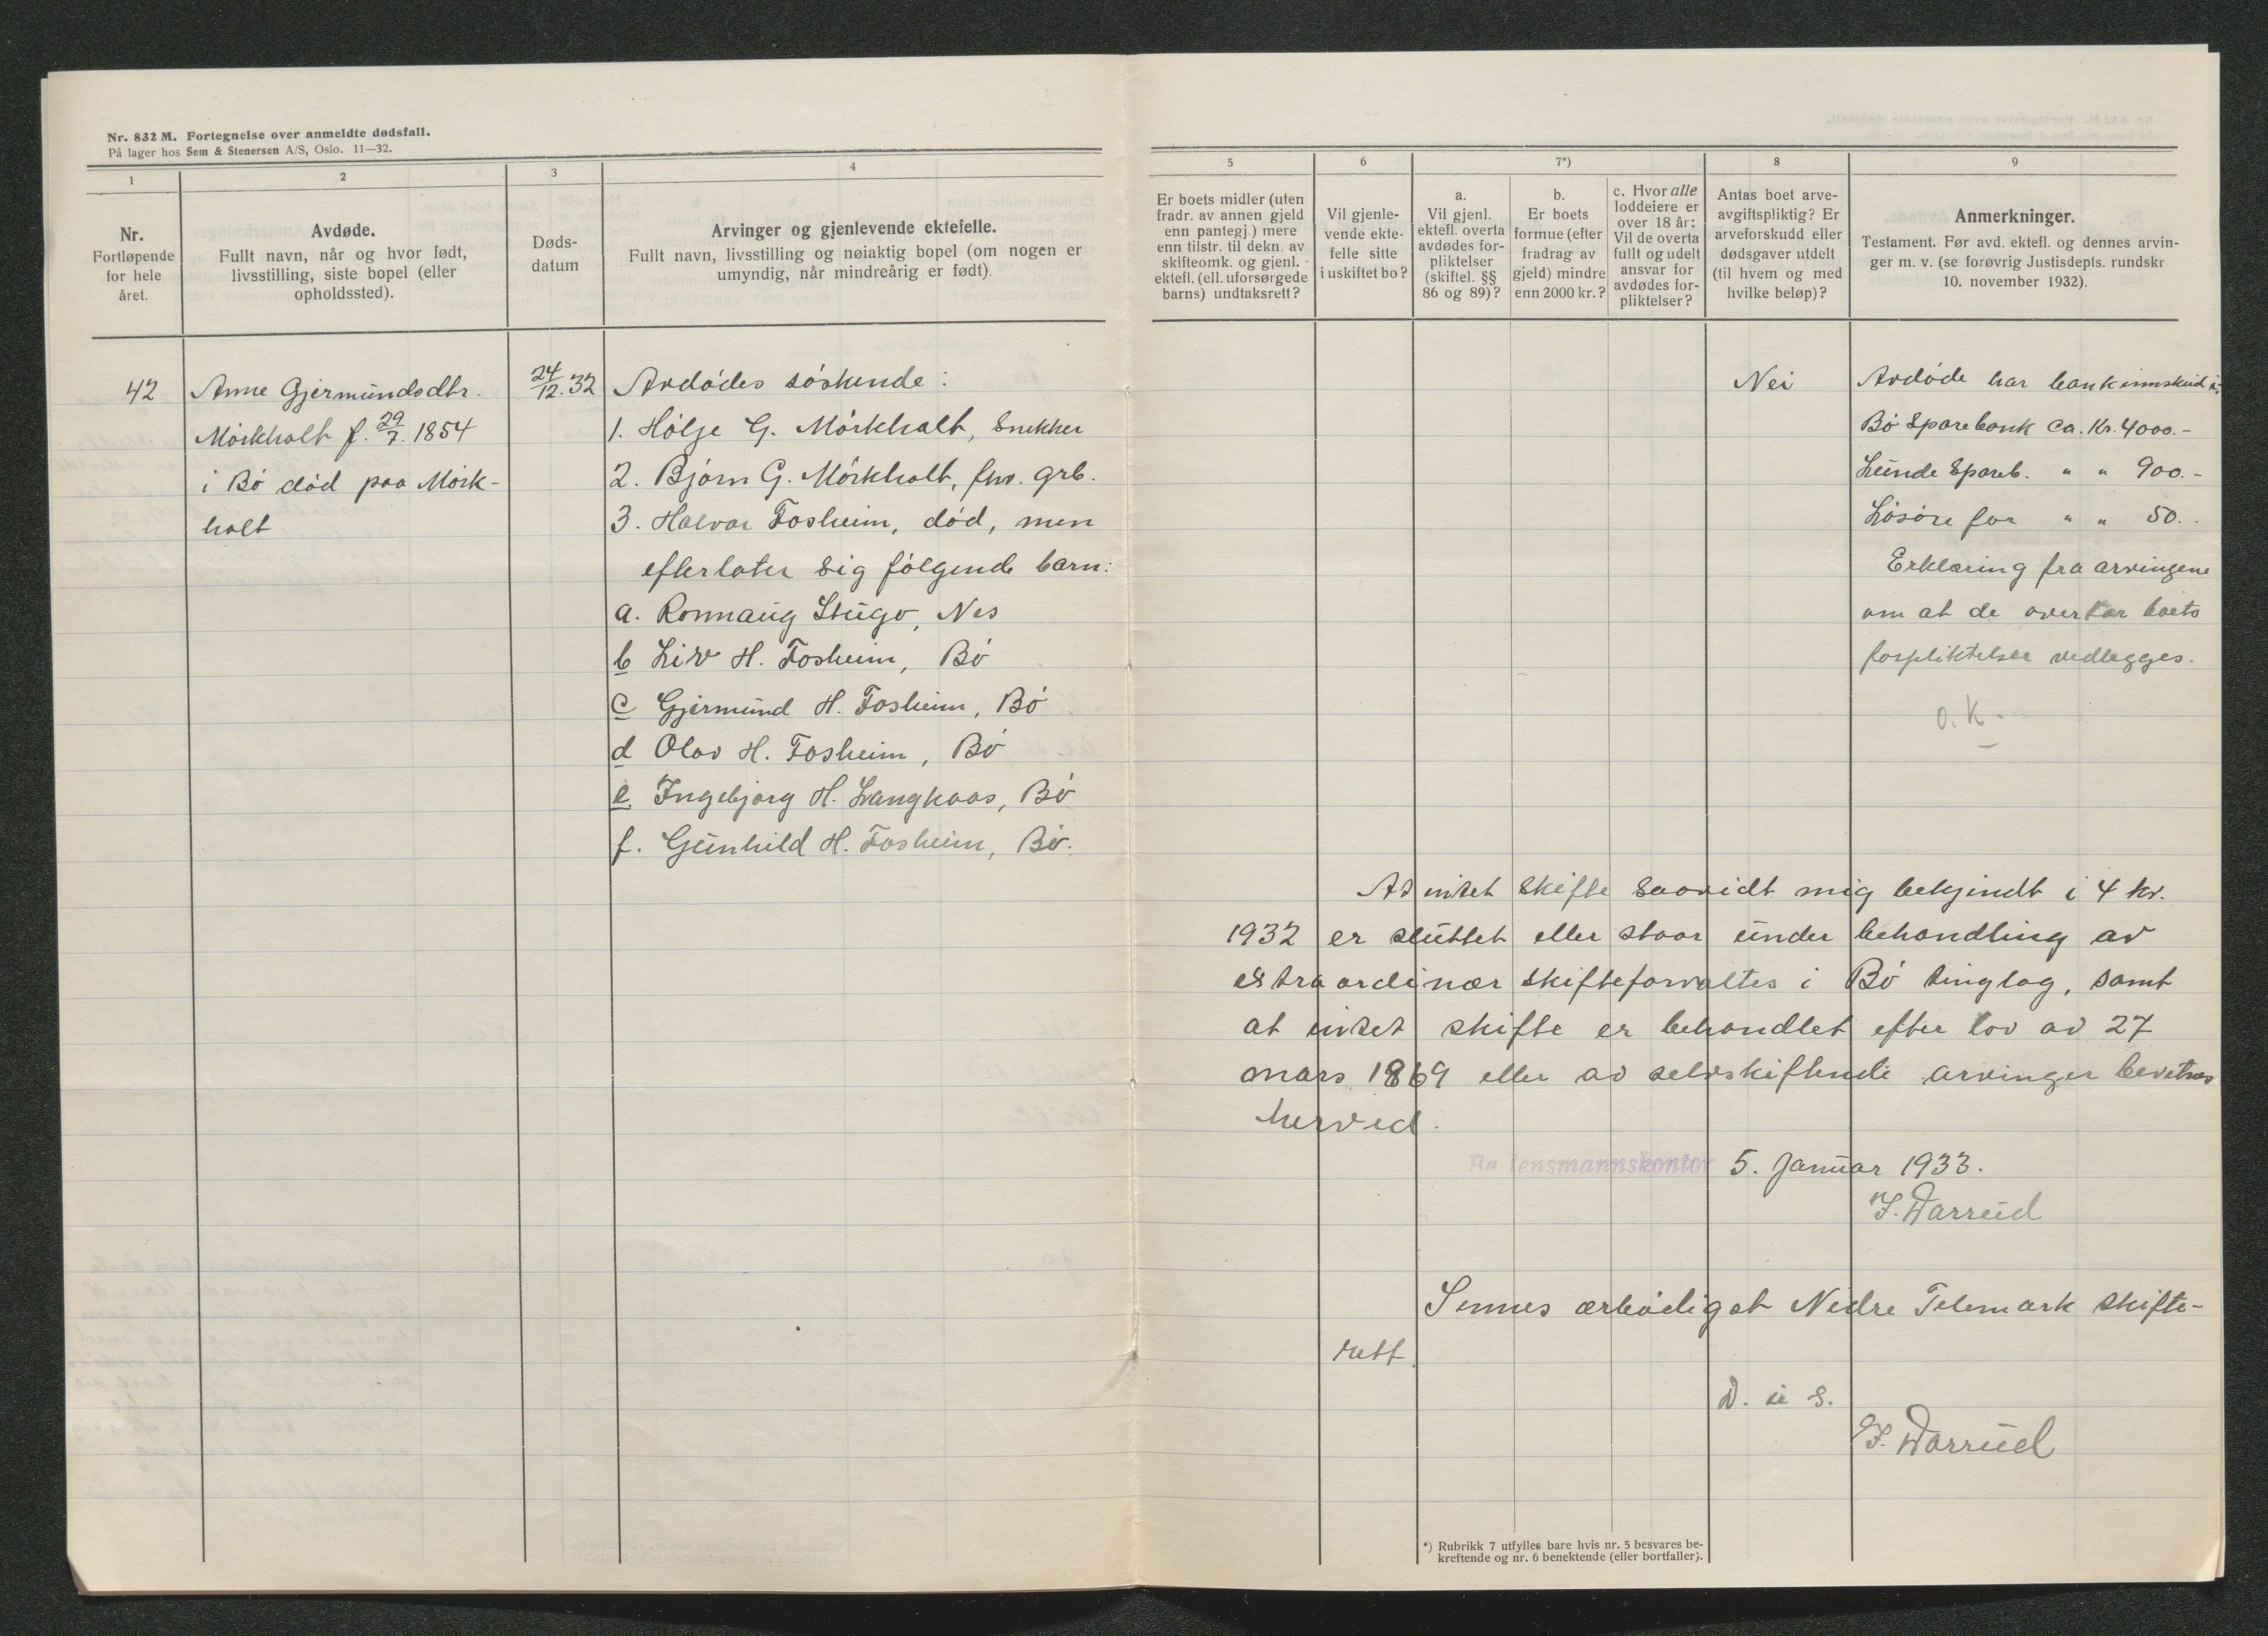 Nr. 832 M. Fortegnelse over anmeldte dødsfall.
På lager hos Sem & Stenersen A/S, Oslo. 11—32.
1
2
3
4
Nr.
Fortløpende
for hele
året.
Avdøde.
Fullt navn, når og hvor født,
livsstilling, siste bopel (eller
opholdssted).
Døds-
datum
Arvinger og gjenlevende ektefelle.
Fullt navn, livsstilling og nøiaktig bopel (om nogen er
umyndig, når mindreårig er født).
42
Anne Gjermundsdtr.
Mörkholt f. 29/7. 1854
i Bö död paa Mörk-
holt
24/12.32
Avdödes söskende:
1. Hölje G. Mörkholt, Snekker
2. Björn G. Mörkholt, fhv. grb.
3. Halvor Fosheim, död, men
efterlater sig fölgende barn:
a. Ronnaug Stugo, Nes
b Liv H. Fosheim, Bö
c Gjermund H. Fosheim, Bö
d Olav H. Fosheim, Bö
e Ingebjørg H. Langkaas, Bö
f. Gunhild H. Fosheim, Bö.
5
6
7*)
8
9
Er boets midler (uten
fradr. av annen gjeld
enn pantegj.) mere
enn tilstr. til dekn. av
skifteomk. og gjenl.
ektefl. (ell. uforsørgede
barns) undtaksrett?
Vil gjenle-
vende ekte-
felle sitte
i uskiftet bo?
a.
Vil gjenl.
ektefl. overta
avdødes for-
pliktelser
(skiftel. §§
86 og 89)?
b.
Er boets
formue (efter
fradrag av
gjeld) mindre
enn 2000 kr.?
c. Hvor alle
loddeiere er
over 18 år:
Vil de overta
fullt og udelt
ansvar for
avdødes for-
pliktelser?
Antas boet arve-
avgiftspliktig? Er
arveforskudd eller
dødsgaver utdelt
(til hvem og med
hvilke beløp)?
Anmerkninger.
Testament. Før avd. ektefl. og dennes arvin-
ger m. v. (se forøvrig Justisdepts. rundskr
10. november 1932).
Nei
Avdöde har bankinnskud i
Bö Sparebank ca. Kr. 4000.-
Lunde Spareb. " " 900.-
Lösöre for " " 50.
Erklæring fra arvingene
om at de overtar boets
forpliktelser vedlegges.
O.K.
At intet skifte saavidt mig bekjendt i 4 kv.
1932 er sluttet eller staar under behandling av
extraordinær skifteforvalter i Bö tinglag, samt
at intet skifte er behandlet efter lov av 27
mars 1869 eller av selvskiftende arvinger bevitnes
herved.
Bø lensmannskontor 5. januar 1933.
Warrud
Sennes ærbödigst Nedre Telemark skifte-
rett.
D. u S.
Warrud
*) Rubrikk 7 utfylles bare hvis nr. 5 besvares be-
kreftende og nr. 6 benektende (eller bortfaller).